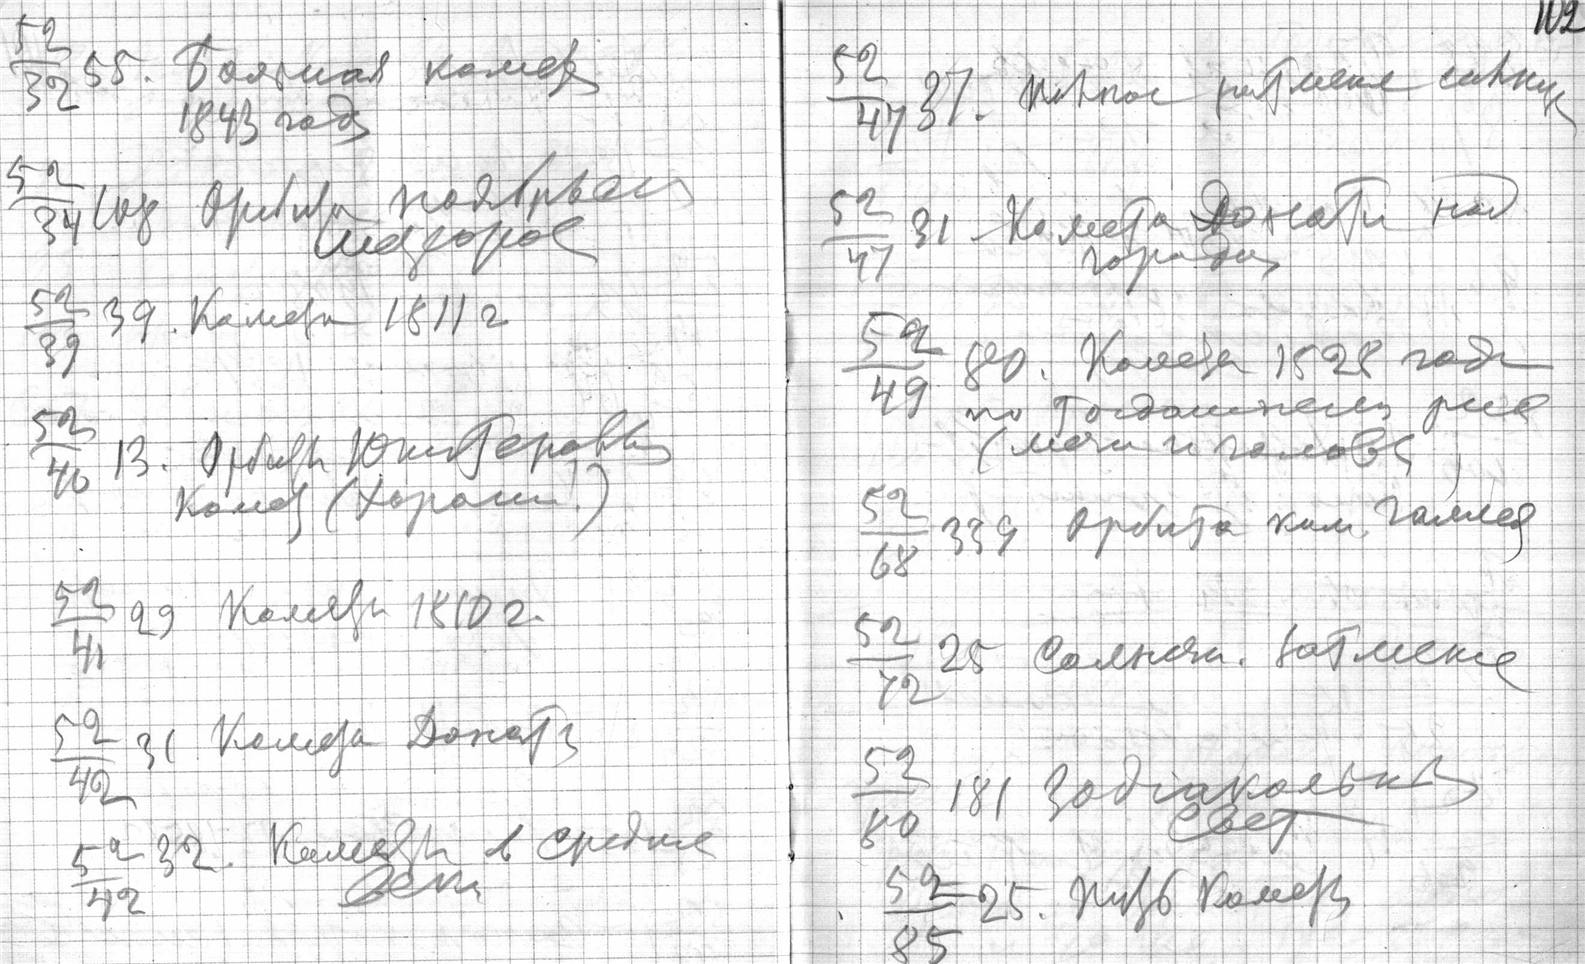 52/32 55. Большая комета
1843 года
52/34 108 Орбита ноябрьских
метеоров
52/39 39. Комета 1811 г
52/40 13. Орбиты Юпитеровых
комет (Хорош.)
52/41 29 Кометы 1810 г.
52/42 31 Комета Донати
52/42 32. Кометы в средние
века
102
52/47 37. затмение
52/47 31 Комета Донати над
городом
52/49 80. Комета 1528 года
по тогдашнему рис
(мечи и головы)
52/68 339 Орбита ком. Галлея
52/72 25 Солнечн. затмение
52/80 181 Зодіакальный
свет
52/85 25. Путь кометы